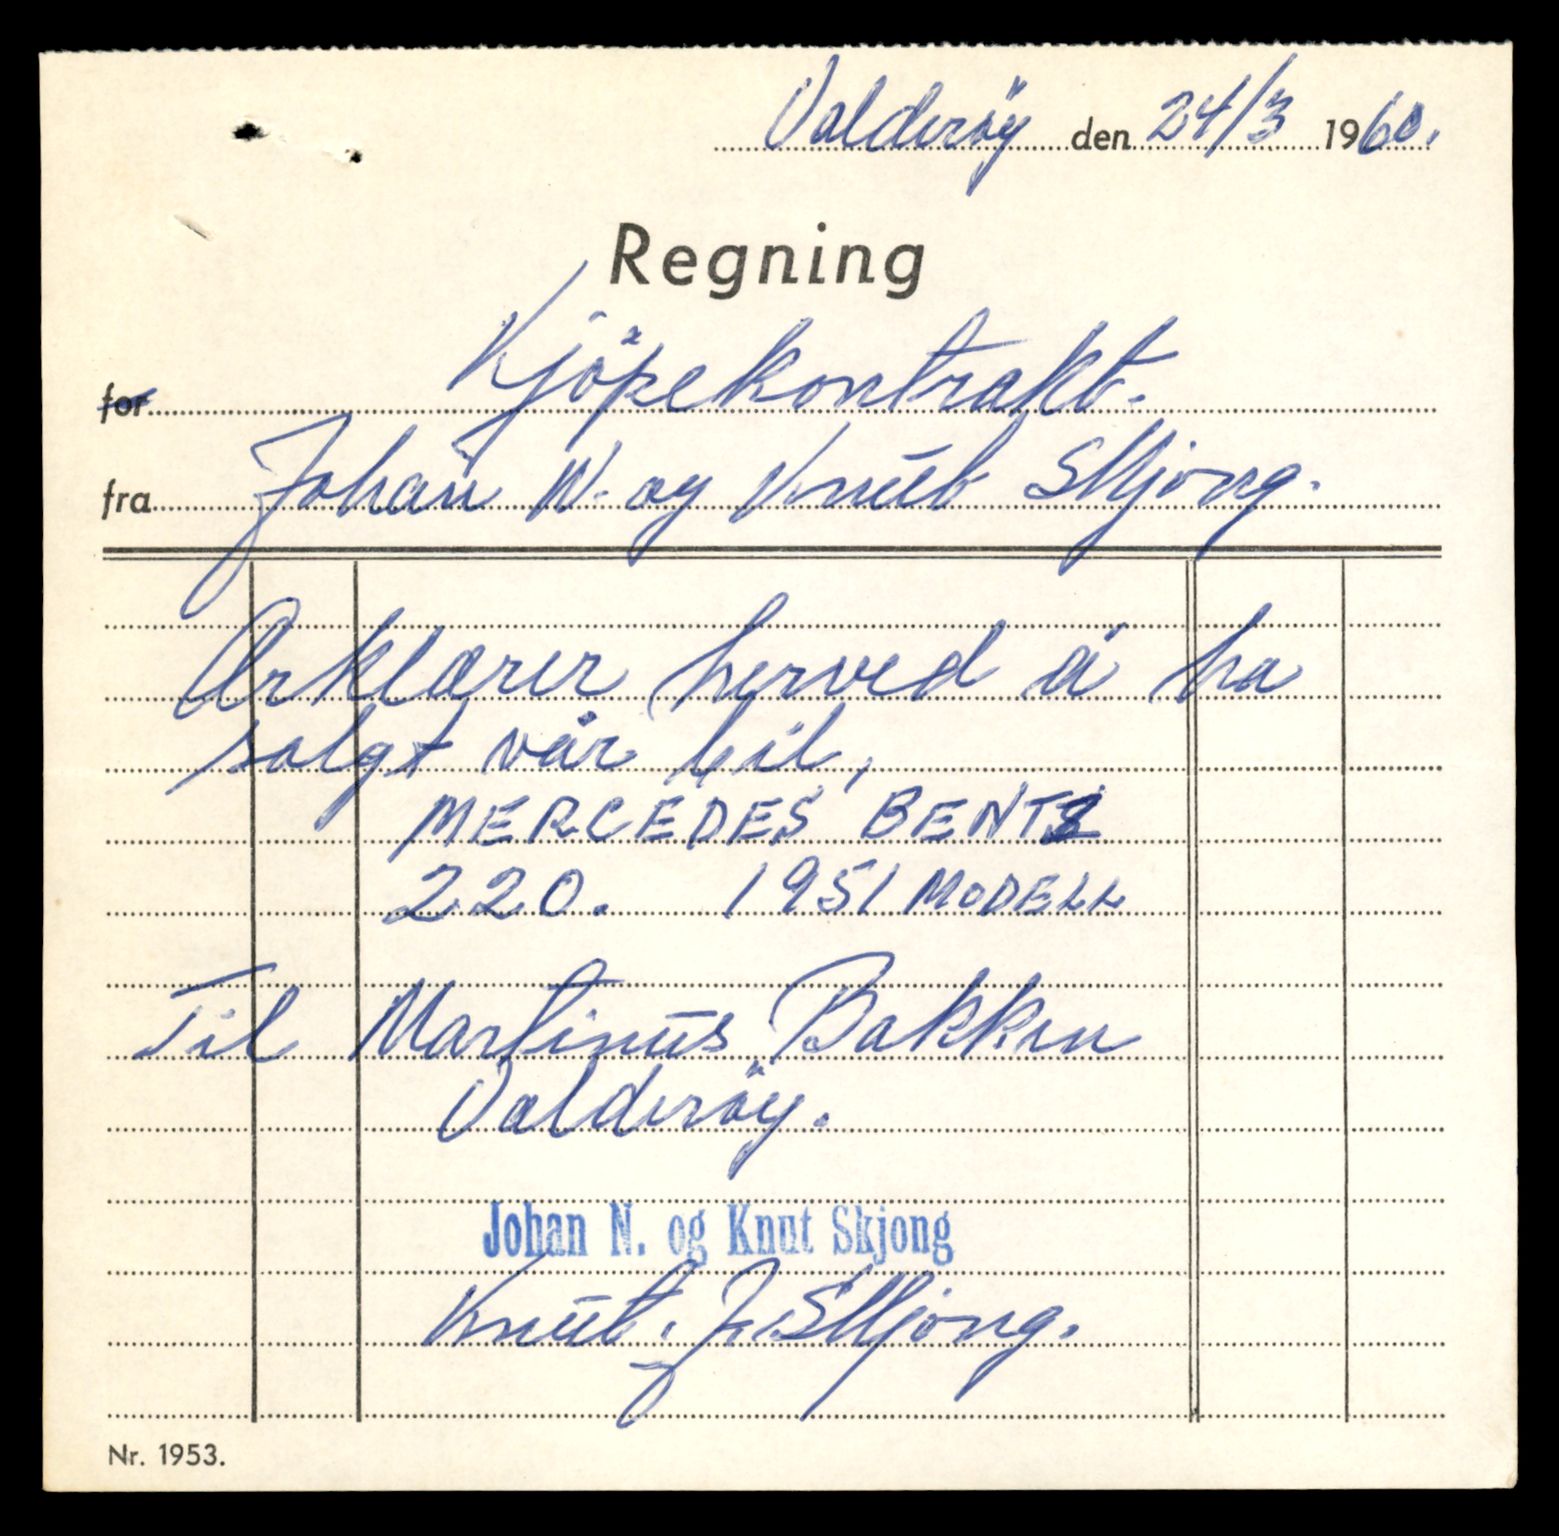 Valderöy den 24/3 1960.
Regning
for Kjöpekontrakt.
fra Johan N. og Knut Skjong.
Erklærer herved å ha
solgt vår bil,
MERCEDES BENTZ
220. 1951 MODELL
Til Martinus Bakken
Valderöy.
Johan N. og Knut Skjong
Knut. J. Skjong.
Nr. 1953.